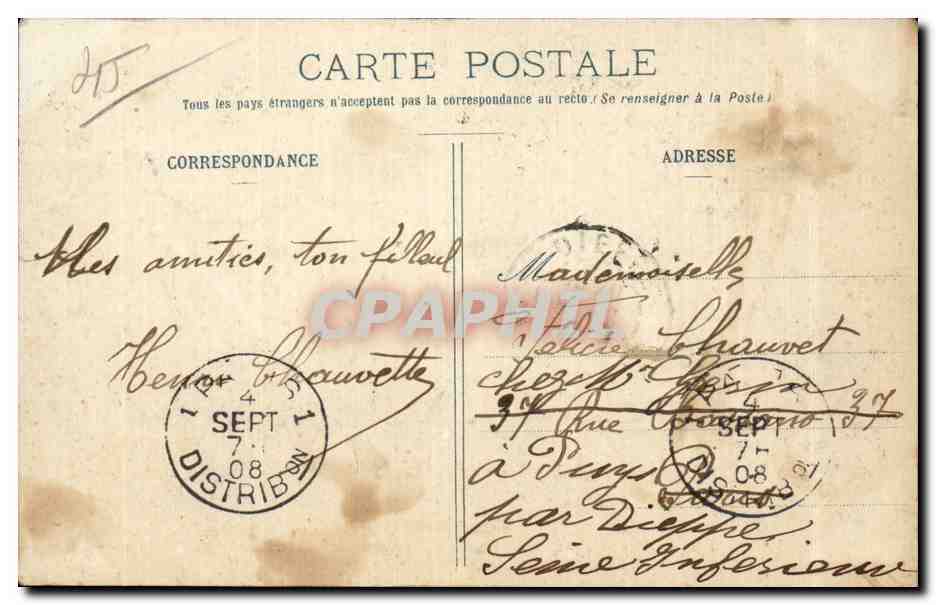 CARTE POSTALE
Tous les pays étrangers n'acceptent pas la correspondance au recto. (Se renseigner à la Poste)
CORRESPONDANCE
Mes amitiés, ton filleul
Henri Chauvette
ADRESSE
Mademoiselle
Félicie Chauvet
chez Mr
37 Rue 37
à Puys
par Dieppe
Seine Inférieure
4
SEPT
08
DISTRIBON
4
SEPT
08
CPAPHIL